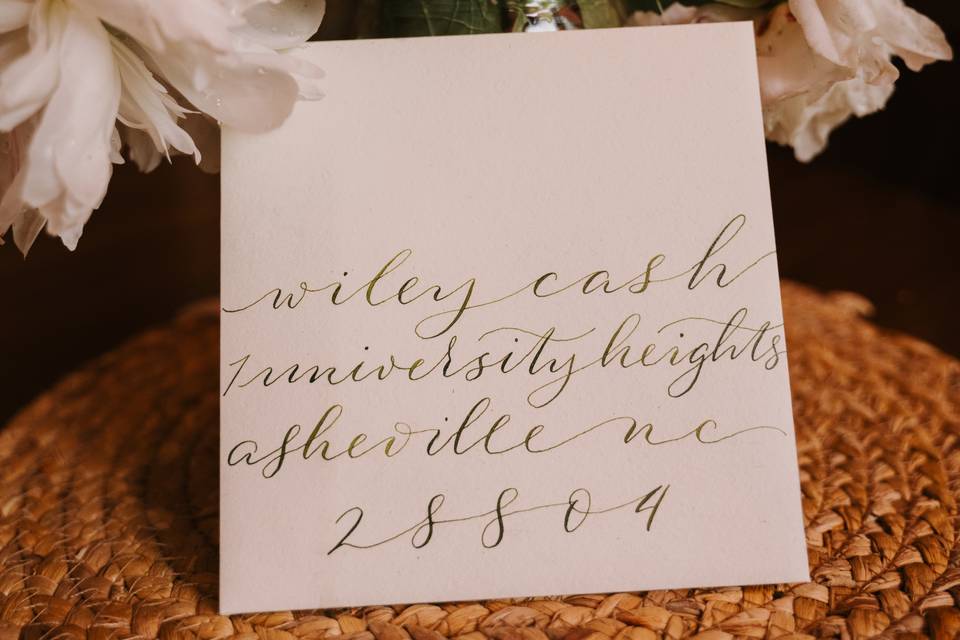 wiley cash
1 university heights
asheville nc
28804